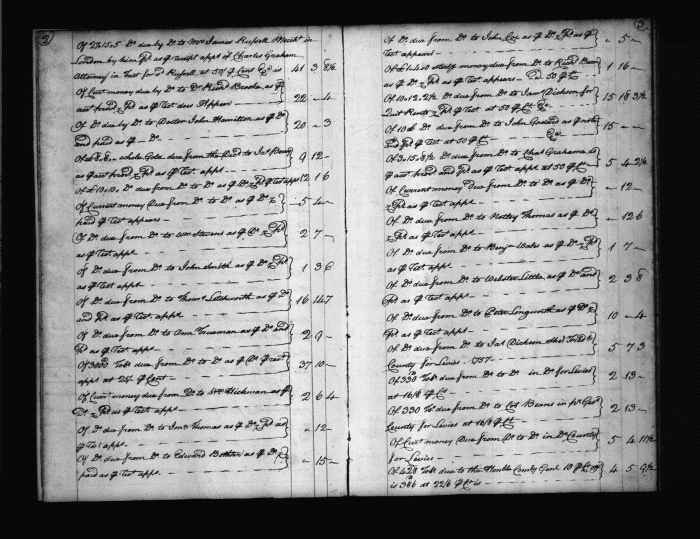 2
Of 27.15.5 Do due by Do to Mr James Russell Mercht in
London by him Pd as pr receipt appt of Charles Graham
Attorney in Fact for sd Russell at 50 pr Cent Exa is 41 3 8½
Of Curt money due by Do to Dr Richd Brooke as pr
acct proved & Pd as pr Test does Appear 22 - 4
Of Do due by Do to Doctor John Hamilton as pr Do
and paid as pr Do 20 - 3
as pr acct proved & Pd as pr Test appt 9 12 -
Of 10.10 Do due from Do to Do as pr Do & Pd pr Test appt 12 16
Of Current money Due from Do to Do as pr Do &
paid pr Test appears - 5 4 -
Of Do due from Do to Wm Stevens as pr Do & Pd
as pr Test appt 2 7 -
Of Do due from Do to John Smith as pr Do & Pd
as pr Test appt 1 3 6
Of Do due from Do to Thoms Letchworth as pr Do
and Pd as pr Test appt 16 14 7
Of Do due from Do to Ann Trueman as pr Do and
Pd as pr Test appt 2 9 -
Of 3000 Tobo due from Do to Do as pr Do
appt at 25/ pr Cent 37 10 -
Of Curt money due from Do to Wm Hickman as pr
Do & Pd as pr Test appt 2 6 4
Of Do due from Do to Jno Thomas as pr Do & Pd as
pr Test appt - 12 -
Of Do due from Do to Edward Boteler as pr Do &
paid as pr Test appt - 15 -
3
Of Do due from Do to John Cox as pr Do & Pd as pr
Test appears - 5 -
staff money due from Do to Richd
as pr Do & Pd as pr Test appears 1 16 -
Of 10.12.2½ Do due from Do to Jams Dickson for
Quit Rents & Pd pr Test at 50 pr Ct Exa 15 18 3½
Of 10 Do due from Do to John as pr note
and Pd pr Test at 50 pr Ct Exa 15 - -
Of 3.15.8½ Do due from Do to Chas Grahame as
pr acct proved and Pd as pr Test appt at 50 pr Ct 5 4 2½
Of Current money Due from Do to Do as pr Do
& Pd as pr Test appt - 12 -
Of Do due from Do to Notley Thomas as pr Do
& Pd as pr Test appt - 12 6
Of Do due from Do to Benja Wales as pr Do & Pd
as pr Test appt 1 7 -
Of Do due from Do to Webster Little as pr Do and
Pd as pr Test appt 2 3 8
Of Do due from Do to Peter Longworth as pr Do &
Pd as pr Test appt 10 - 4
Of Do due from Do to Jas Dickson
County for Levies - 1757 5 7 3
Of 330 Tobo due from Do to Do in Do for Levies
at 16/8 pr Ct 2 13 -
Of 330 Tobo due from Do to Col Beans in Pr Geos
County for Levies at 16/8 pr Ct 2 13 -
Of Curt money Due from Do to Do in Do County
for Levies 5 4 11½
Of 428 Tobo due to the County
is 386 at 22/6 pr Ct is 4 5 9½